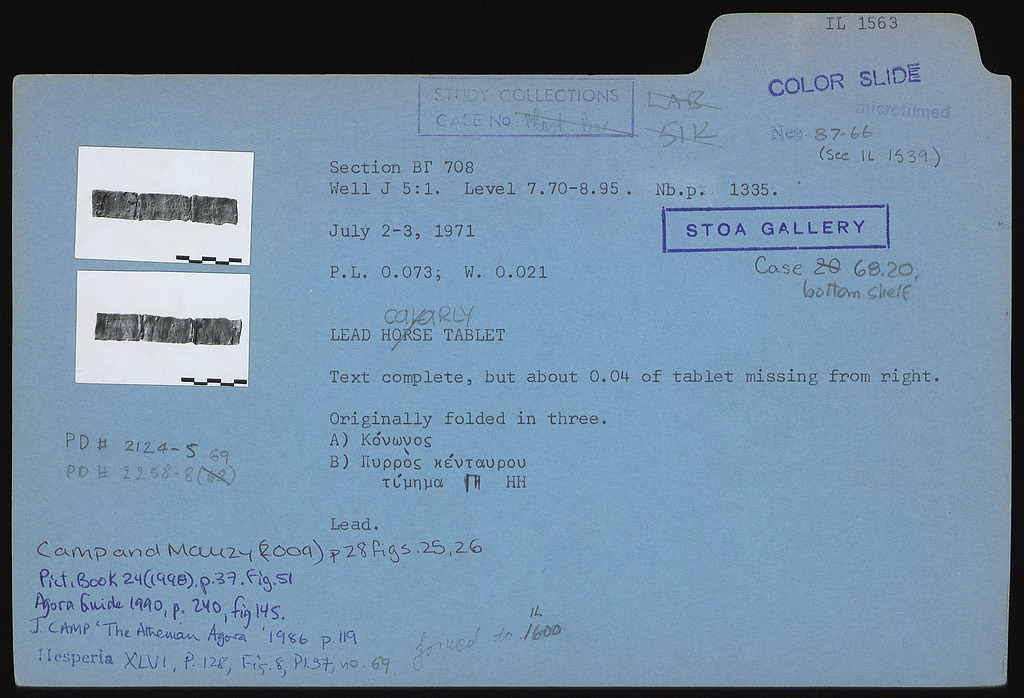 IL 1563
COLOR SLIDE
microfilmed
STUDY COLLECTIONS
CASE No Plast. Box
LAB
51K
Neg. 87-66
(see IL 1539)
Section ΒΓ 708
Well J 5:1. Level 7.70-8.95. Nb.p. 1335.
STOA GALLERY
July 2-3, 1971
Case 20 68.20,
bottom shelf
P.L. 0.073; W. 0.021
cavaRLY
LEAD HORSE TABLET
Text complete, but about 0.04 of tablet missing from right.
Originally folded in three.
A) Κόνωνος
B) Πυρρὸς κένταυρου
τίμημα 𐅅Η ΗΗ
PD # 2124-5
69
PD # 2258-8(68)
Lead.
Camp and Mauzy (2009) p 28 figs. 25, 26
Pict. Book 24 (1998). p. 37. fig. 51
Agora Guide 1990, p. 240, fig 145.
J. CAMP 'The Athenian Agora' 1986 p. 119
joined to IL 1600
Hesperia XLVI, P. 128, Fig. 8, Pl. 37, no. 69